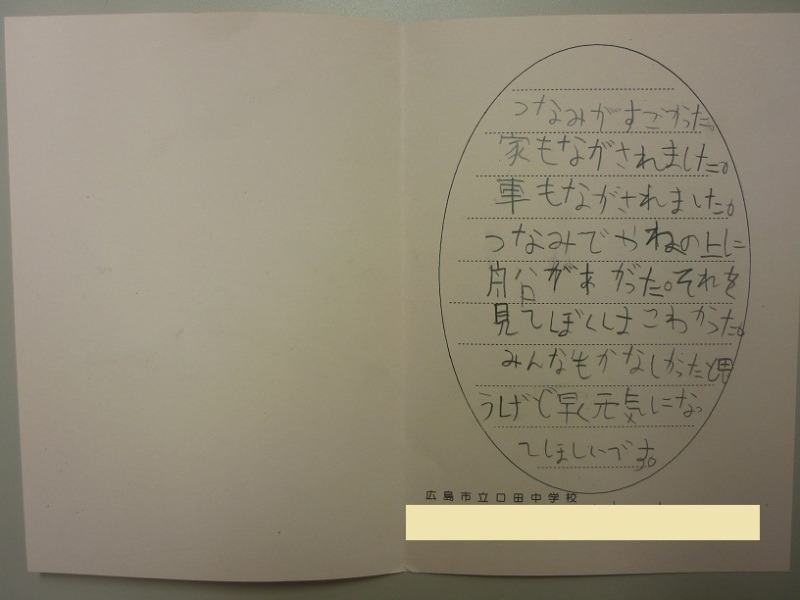 つなみがすごかった。
家もながされました。
車もながされました。
つなみでやねの上に
船があがった。それを
見てぼくはこわかった。
みんなもかなしかったと思
うけど早く元気になっ
てほしいです。
広島市立口田中学校